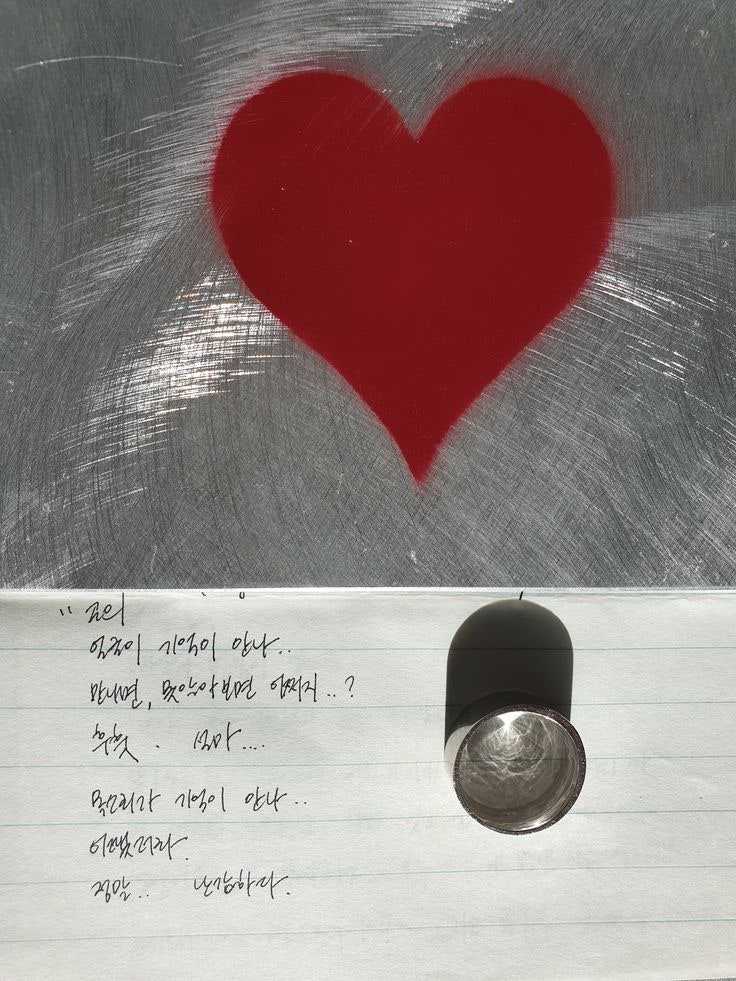 얼굴이 기억이 안나..
만나면, 못알아보면 어쩌지..?
후훗. 설마....
목소리가 기억이 안나..
어땠더라.
정말.. 난감하다.